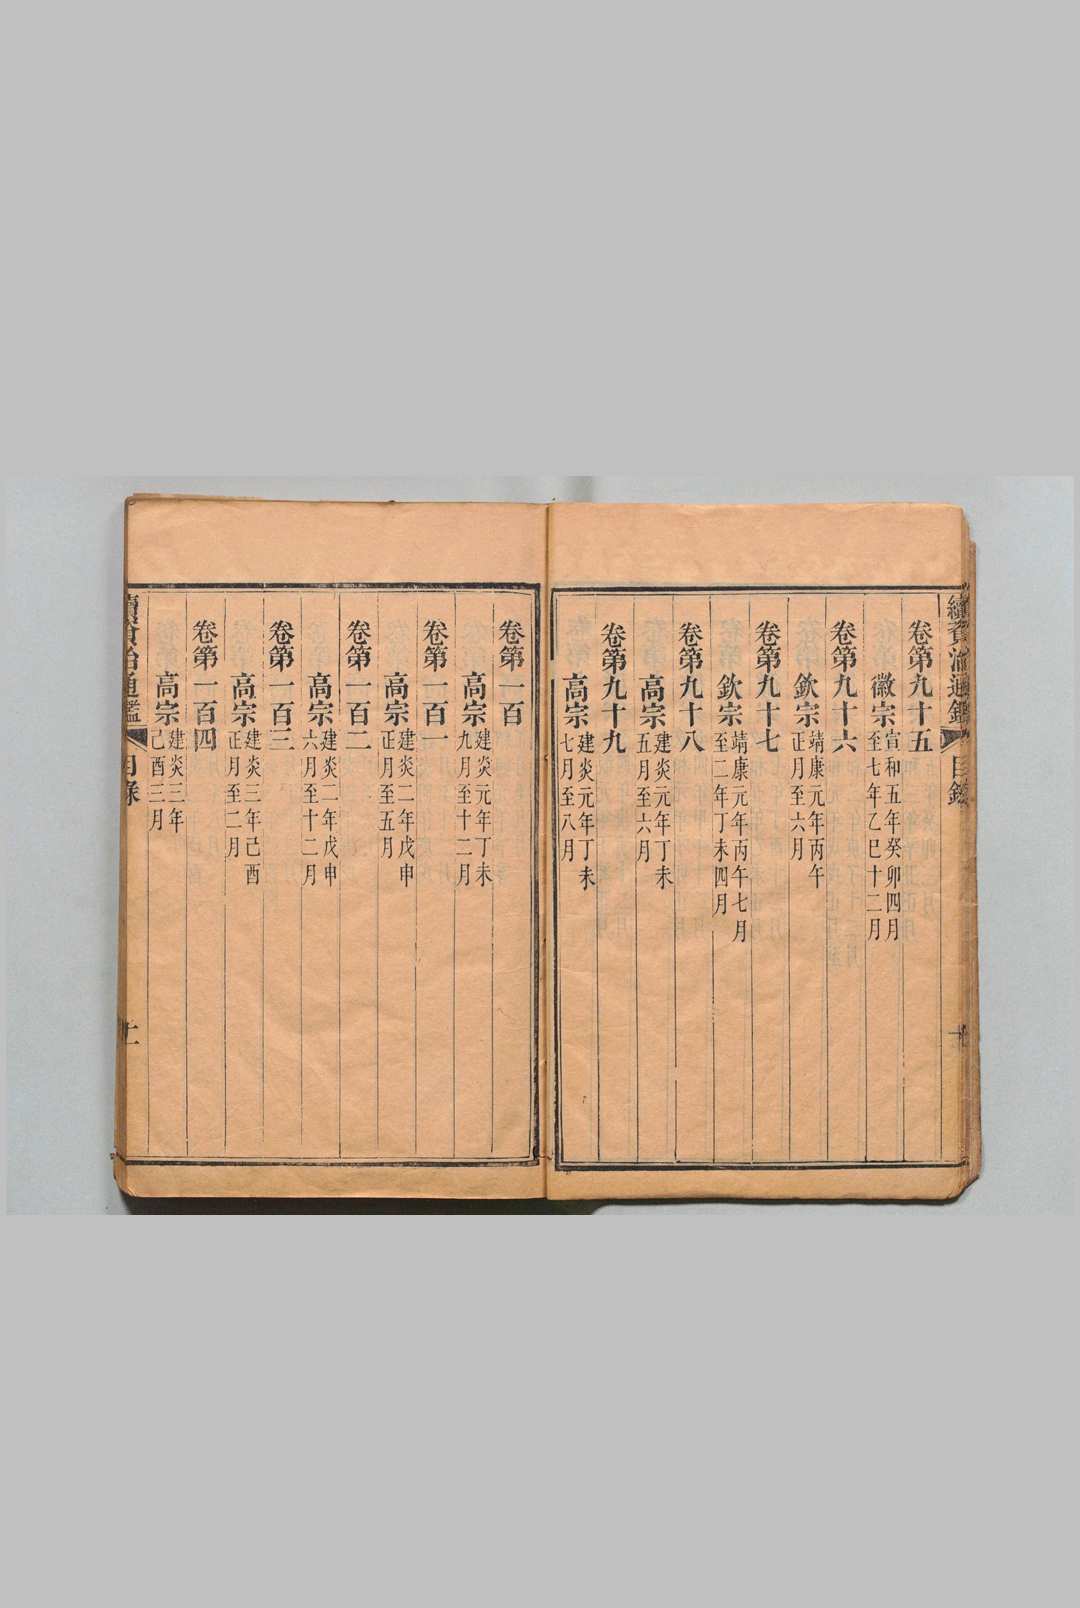 續資治通鑑 目錄
卷第九十五
徽宗 宣和五年癸卯四月
至七年乙巳十二月
卷第九十六
欽宗 靖康元年丙午
正月至六月
卷第九十七
欽宗 靖康元年丙午七月
至二年丁未四月
卷第九十八
高宗 建炎元年丁未
五月至六月
卷第九十九
高宗 建炎元年丁未
七月至八月
卷第一百
高宗 建炎元年丁未
九月至十二月
卷第一百一
高宗 建炎二年戊申
正月至五月
卷第一百二
高宗 建炎二年戊申
六月至十二月
卷第一百三
高宗 建炎三年己酉
正月至二月
卷第一百四
高宗 建炎三年
己酉三月
續資治通鑑 目錄